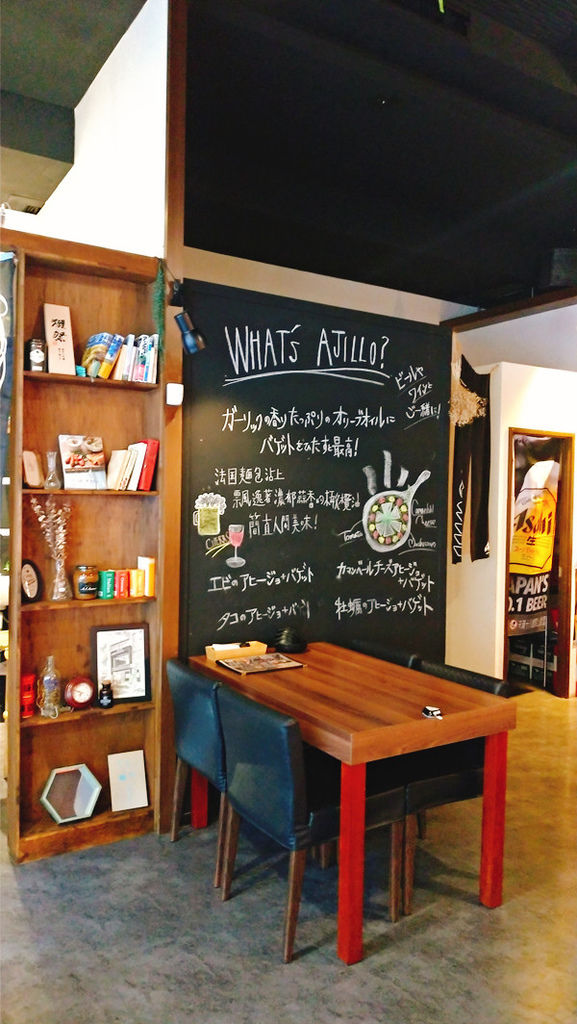 獺祭
WHAT'S AJILLO?
ビールや
ワインと
ご一緒に!
ガーリックの香りたっぷりのオリーブオイルに
バゲットをひたすと最高!
法国麵包沾上
飄逸著濃郁蒜香の橄欖油
簡直人間美味!
CHEERS
Camembert
Cheese
Tomato
Mushrooms
エビのアヒージョ+バゲット
カマンベールチーズアヒージョ
+バゲット
タコのアヒージョ+バゲット
牡蠣のアヒージョ+バゲット
Asahi
生
JAPAN'S
NO.1 BEER